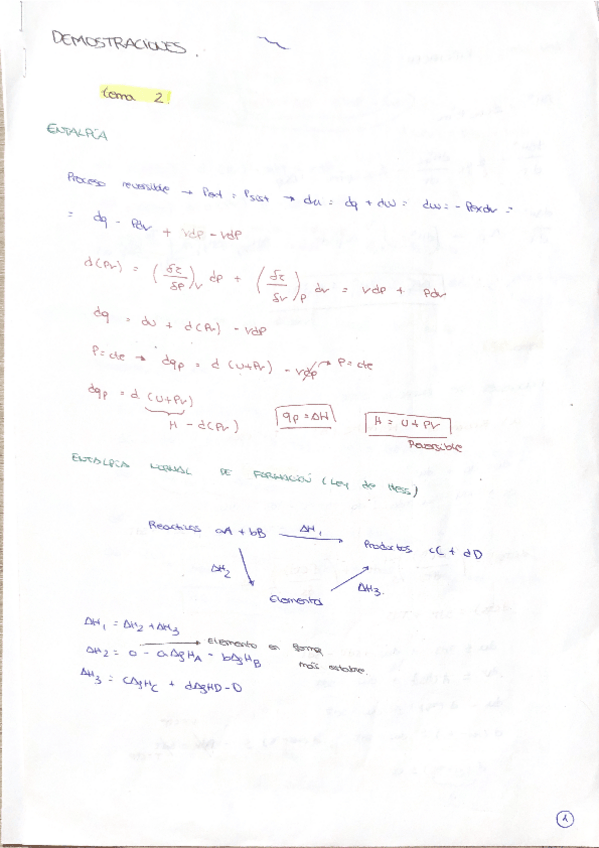 DEMOSTRACIONES.
tema 2.
ENTALPÍA
Proceso reversible → Pext = Psist → du = dq + dw = dw = -Pexdv =
= dq - Pdv + vdp - vdp
d(Pv) = (δz/δp)v dp + (δz/δv)p dv = vdp + Pdv
dq = du + d(Pv) - vdp
P = cte → dqp = d (U+Pv) - vdp → P = cte
dqp = d (U+Pv)
H - d(Pv)
qp = ΔH
H = U + PV
Reversible
ENTALPÍA NORMAL DE FORMACIÓN (Ley de Hess)
Reactivos aA + bB
ΔH1
Productos cC + dD
ΔH2
Elementos
ΔH3.
ΔH1 = ΔH2 + ΔH3
→ elemento en forma más estable
ΔH2 = 0 - aΔfHA - bΔfHB
ΔH3 = cΔfHC + dΔfHD - 0
1